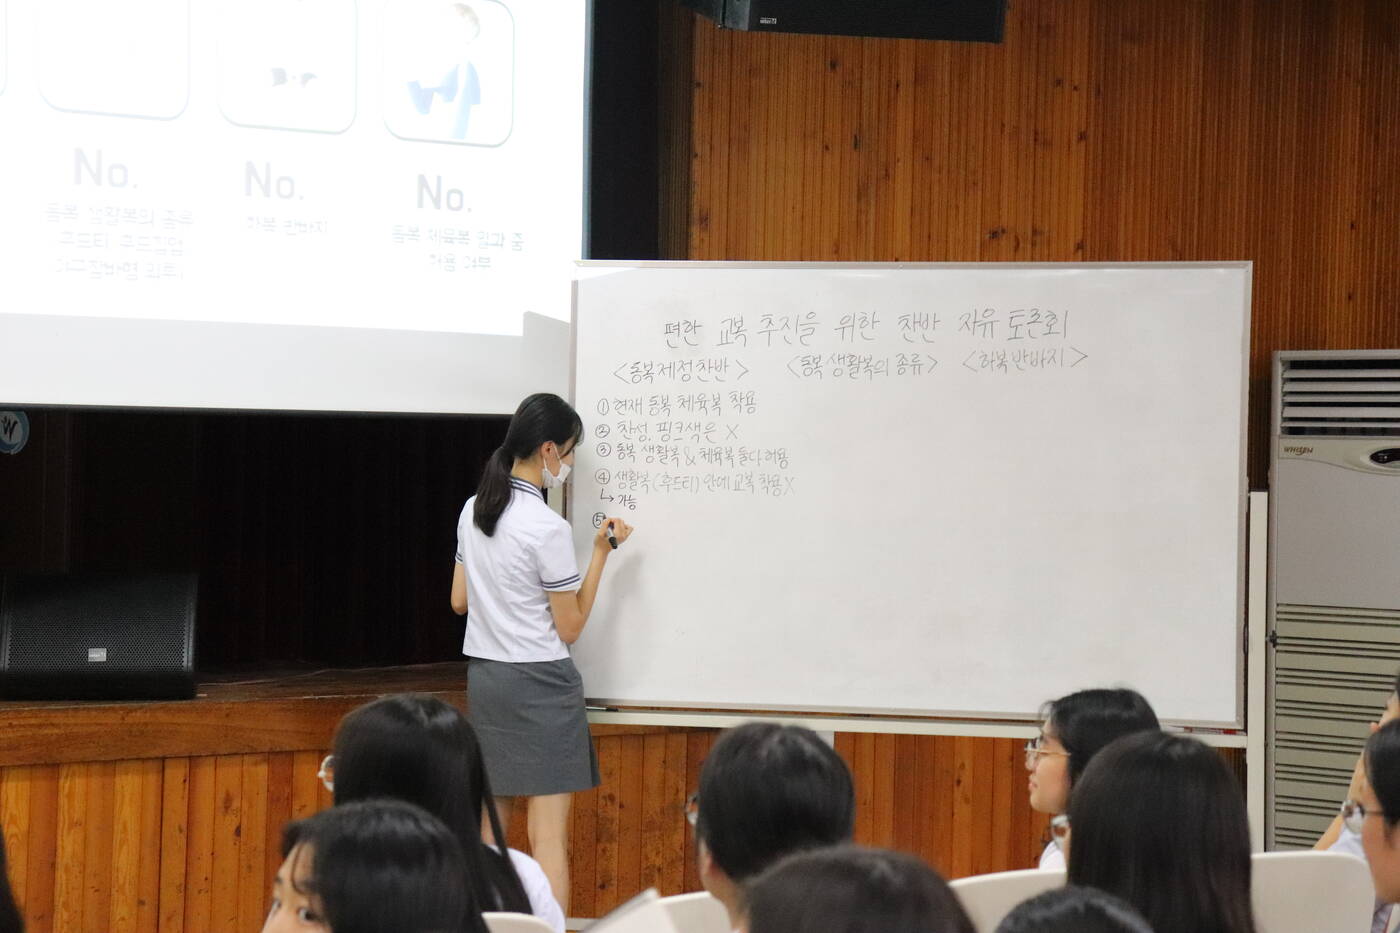 No.
No.
No.
동복 생활복의 종류
후드티 후드집업
하복 반바지
동복 체육복 일과 중
허용 여부
편한 교복 추진을 위한 찬반 자유 토론회
<동복제정찬반> <동복 생활복의 종류> <하복반바지>
① 현재 동복 체육복 착용
② 찬성. 핑크색은 X
③ 동복 생활복 & 체육복 둘다 허용
④ 생활복(후드티) 안에 교복 착용 X
↳ 가능
⑤
WHISEN